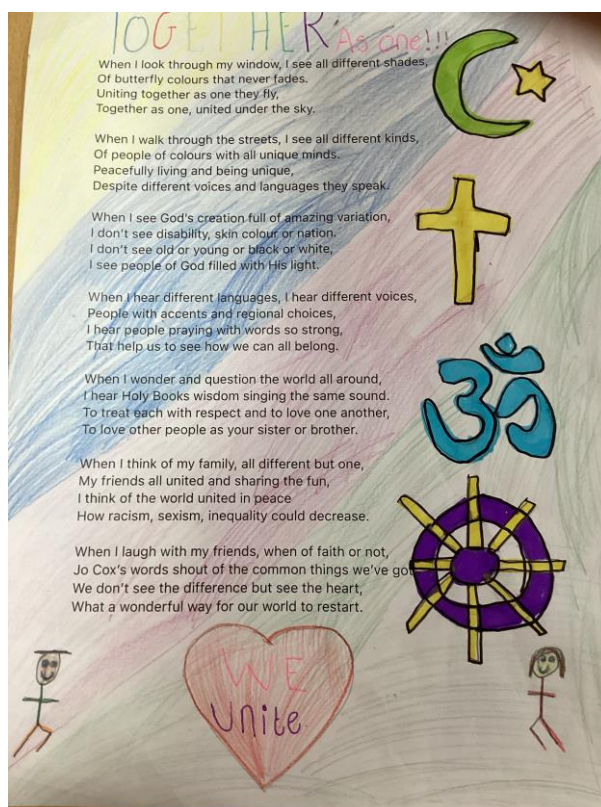 TOGETHER As one!!!
When I look through my window, I see all different shades,
Of butterfly colours that never fades.
Uniting together as one they fly,
Together as one, united under the sky.
When I walk through the streets, I see all different kinds,
Of people of colours with all unique minds.
Peacefully living and being unique,
Despite different voices and languages they speak.
When I see God's creation full of amazing variation,
I don't see disability, skin colour or nation.
I don't see old or young or black or white,
I see people of God filled with His light.
When I hear different languages, I hear different voices,
People with accents and regional choices,
I hear people praying with words so strong,
That help us to see how we can all belong.
When I wonder and question the world all around,
I hear Holy Books wisdom singing the same sound.
To treat each with respect and to love one another,
To love other people as your sister or brother.
When I think of my family, all different but one,
My friends all united and sharing the fun,
I think of the world united in peace
How racism, sexism, inequality could decrease.
When I laugh with my friends, when of faith or not,
Jo Cox's words shout of the common things we've got
We don't see the difference but see the heart,
What a wonderful way for our world to restart.
WE
Unite